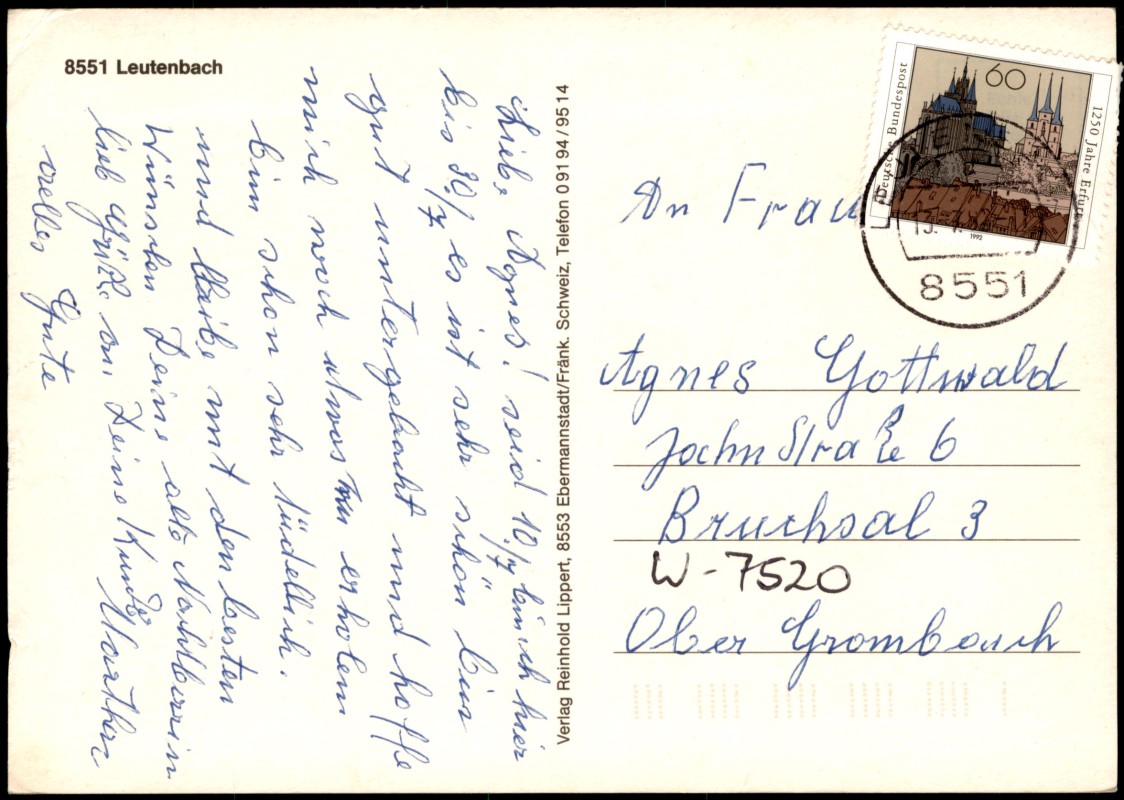 8551 Leutenbach
Liebe Agnes! seid 10./7 bin ich hier
bis 30/7 es ist sehr schön bin
gut untergebracht und hoffe
mich noch etwas zu erholen
bin schon sehr
und bleibe mit den besten
Wünschen Deine alte Nachtberrin
lieb Grüße an Deine Kunde Marthe
velles Gute
Verlag Reinhold Lippert, 8553 Ebermannstadt/Fränk. Schweiz, Telefon 0 91 94 / 95 14
Deutsche Bundespost
60
1250 Jahre Erfurt
1992
8551
An Frau
Agnes Gottwald
JochnStraße 6
Bruchsal 3
W-7520
Ober Grombach